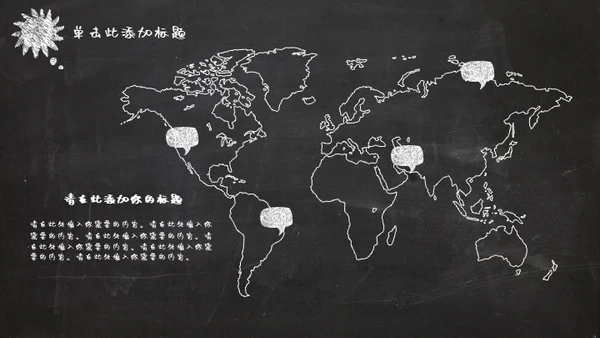 单击此添加标题
请在此添加你的标题
请在此处输入你需要的内容。请在此处输入你
需要的内容。请在此处输入你需要的内容。请
在此处输入你需要的内容。请在此处输入你需
要的内容。请在此处输入你需要的内容。